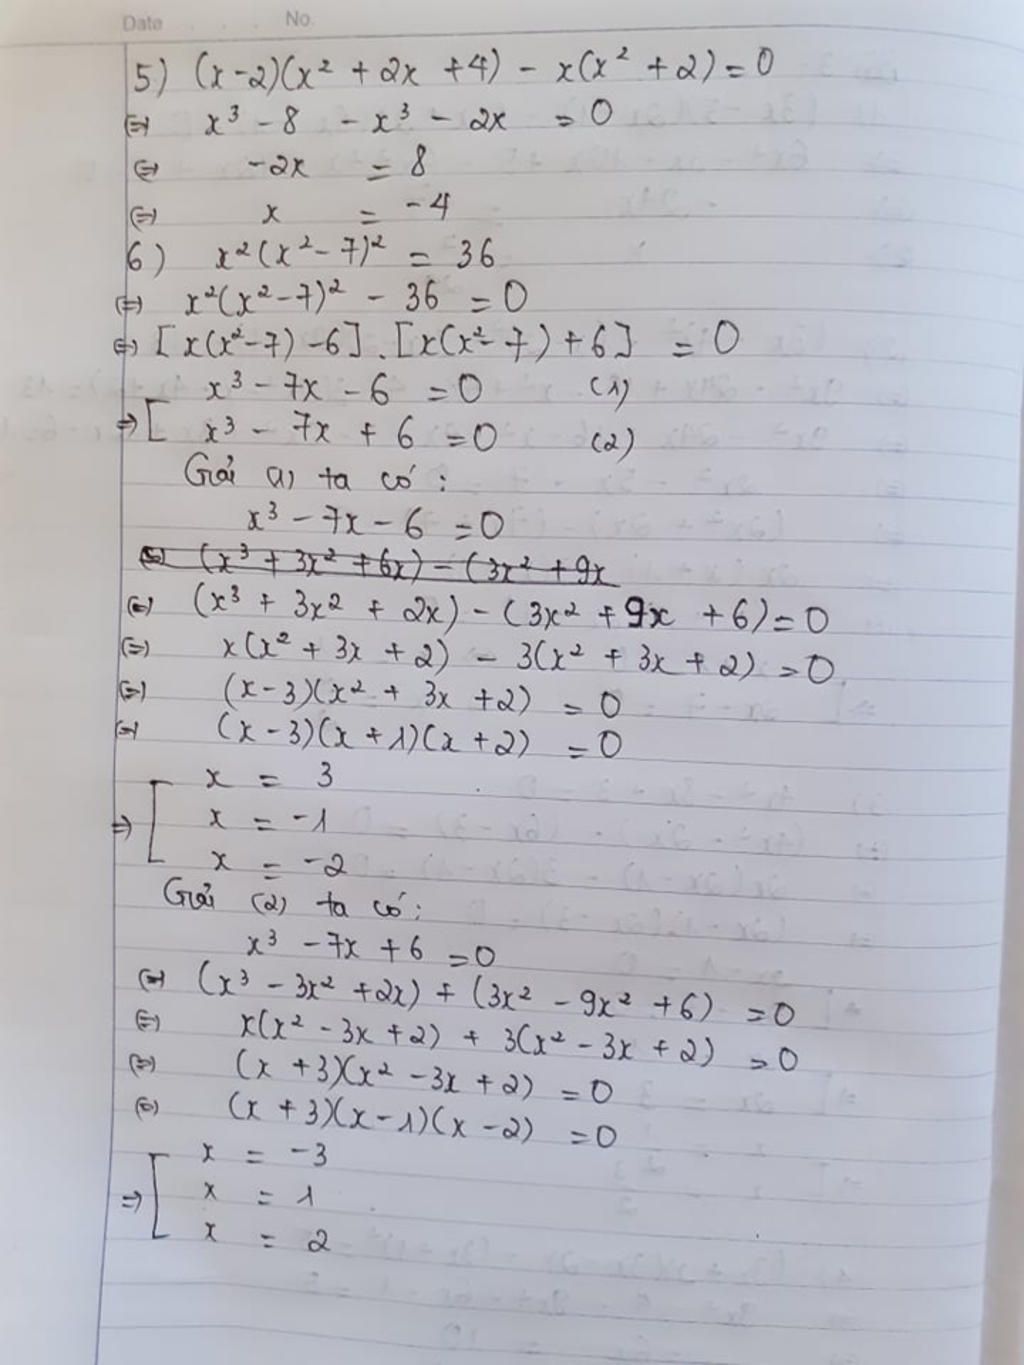 Date . . . No.
5) (x-2)(x² + 2x + 4) - x(x² + 2) = 0
⇔ x³ - 8 - x³ - 2x = 0
⇔ -2x = 8
⇔ x = -4
6) x²(x² - 7)² = 36
⇔ x²(x² - 7)² - 36 = 0
⇔ [x(x² - 7) - 6] . [x(x² - 7) + 6] = 0
x³ - 7x - 6 = 0 (1)
⇒ [ x³ - 7x + 6 = 0 (2)
Giải (1) ta có :
x³ - 7x - 6 = 0
⇔ (x³ + 3x² + 6x) - (3x² + 9x
⇔ (x³ + 3x² + 2x) - (3x² + 9x + 6) = 0
⇔ x(x² + 3x + 2) - 3(x² + 3x + 2) = 0
⇔ (x - 3)(x² + 3x + 2) = 0
⇔ (x - 3)(x + 1)(x + 2) = 0
x = 3
⇒ [ x = -1
x = -2
Giải (2) ta có :
x³ - 7x + 6 = 0
⇔ (x³ - 3x² + 2x) + (3x² - 9x² + 6) = 0
⇔ x(x² - 3x + 2) + 3(x² - 3x + 2) = 0
⇔ (x + 3)(x² - 3x + 2) = 0
⇔ (x + 3)(x - 1)(x - 2) = 0
x = -3
⇒ [ x = 1
x = 2